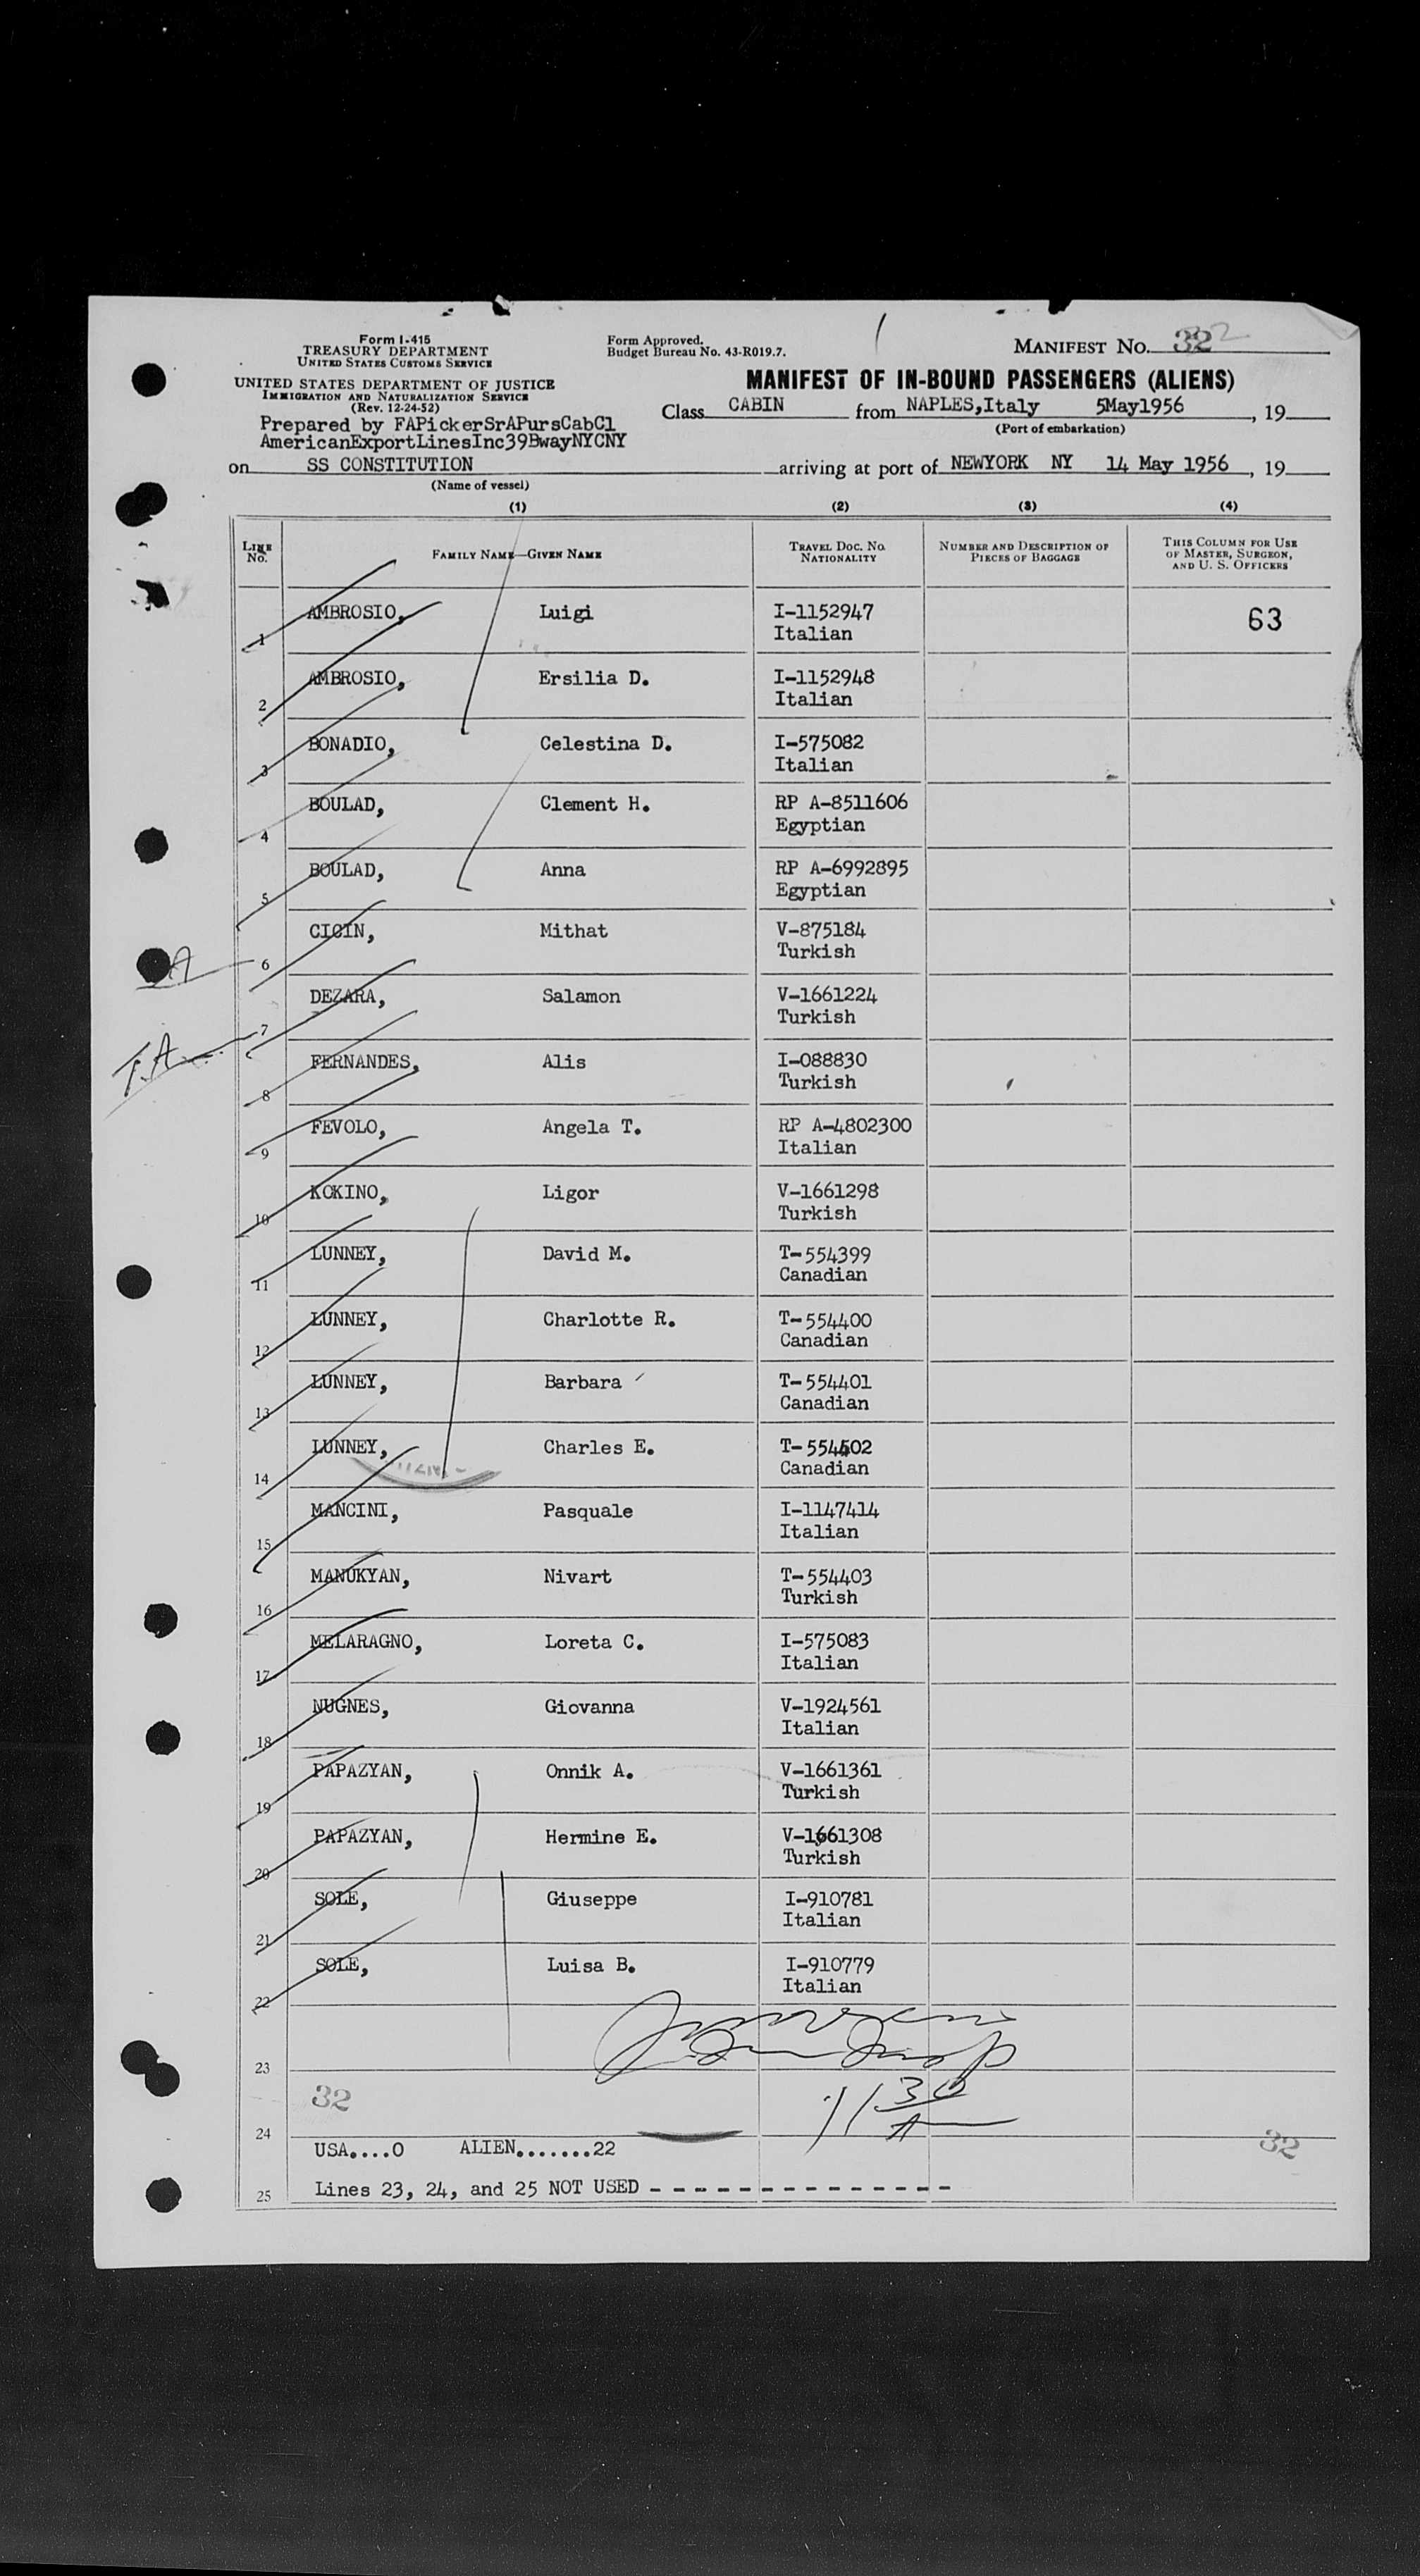 Form I-415
TREASURY DEPARTMENT
UNITED STATES CUSTOMS SERVICE
UNITED STATES DEPARTMENT OF JUSTICE
IMMIGRATION AND NATURALIZATION SERVICE
(Rev. 12-24-52)
Prepared by FAPickerSrAPursCabCl
AmericanExportLinesInc39BwayNYCNY
Form Approved.
Budget Bureau No. 43-R019.7.
MANIFEST No. 32
MANIFEST OF IN-BOUND PASSENGERS (ALIENS)
Class CABIN from NAPLES,Italy 5May1956, 19
(Port of embarkation)
on SS CONSTITUTION arriving at port of NEWYORK NY 14 May 1956, 19
(Name of vessel)
(1) (2) (3) (4)
LINE No. FAMILY NAME—GIVEN NAME TRAVEL DOC. No. NATIONALITY NUMBER AND DESCRIPTION OF PIECES OF BAGGAGE THIS COLUMN FOR USE OF MASTER, SURGEON, AND U. S. OFFICERS
1 AMBROSIO, Luigi I-1152947 63
Italian
2 AMBROSIO, Ersilia D. I-1152948
Italian
3 BONADIO, Celestina D. I-575082
Italian
4 BOULAD, Clement H. RP A-8511606
Egyptian
5 BOULAD, Anna RP A-6992895
Egyptian
6 CICIN, Mithat V-875184
Turkish
7 DEZARA, Salamon V-1661224
Turkish
T.A
8 FERNANDES, Alis I-088830
Turkish
9 FEVOLO, Angela T. RP A-4802300
Italian
10 KOKINO, Ligor V-1661298
Turkish
11 LUNNEY, David M. T-554399
Canadian
12 LUNNEY, Charlotte R. T-554400
Canadian
13 LUNNEY, Barbara T-554401
Canadian
14 LUNNEY, Charles E. T-554402
Canadian
15 MANCINI, Pasquale I-1147414
Italian
16 MANUKYAN, Nivart T-554403
Turkish
17 MELARAGNO, Loreta C. I-575083
Italian
18 NUGNES, Giovanna V-1924561
Italian
19 PAPAZYAN, Onnik A. V-1661361
Turkish
20 PAPAZYAN, Hermine E. V-1661308
Turkish
21 SOLE, Giuseppe I-910781
Italian
22 SOLE, Luisa B. I-910779
Italian
23
32
11 30
A
24
USA....0 ALIEN.......22
32
25 Lines 23, 24, and 25 NOT USED - - - - - - - - - - - - - -